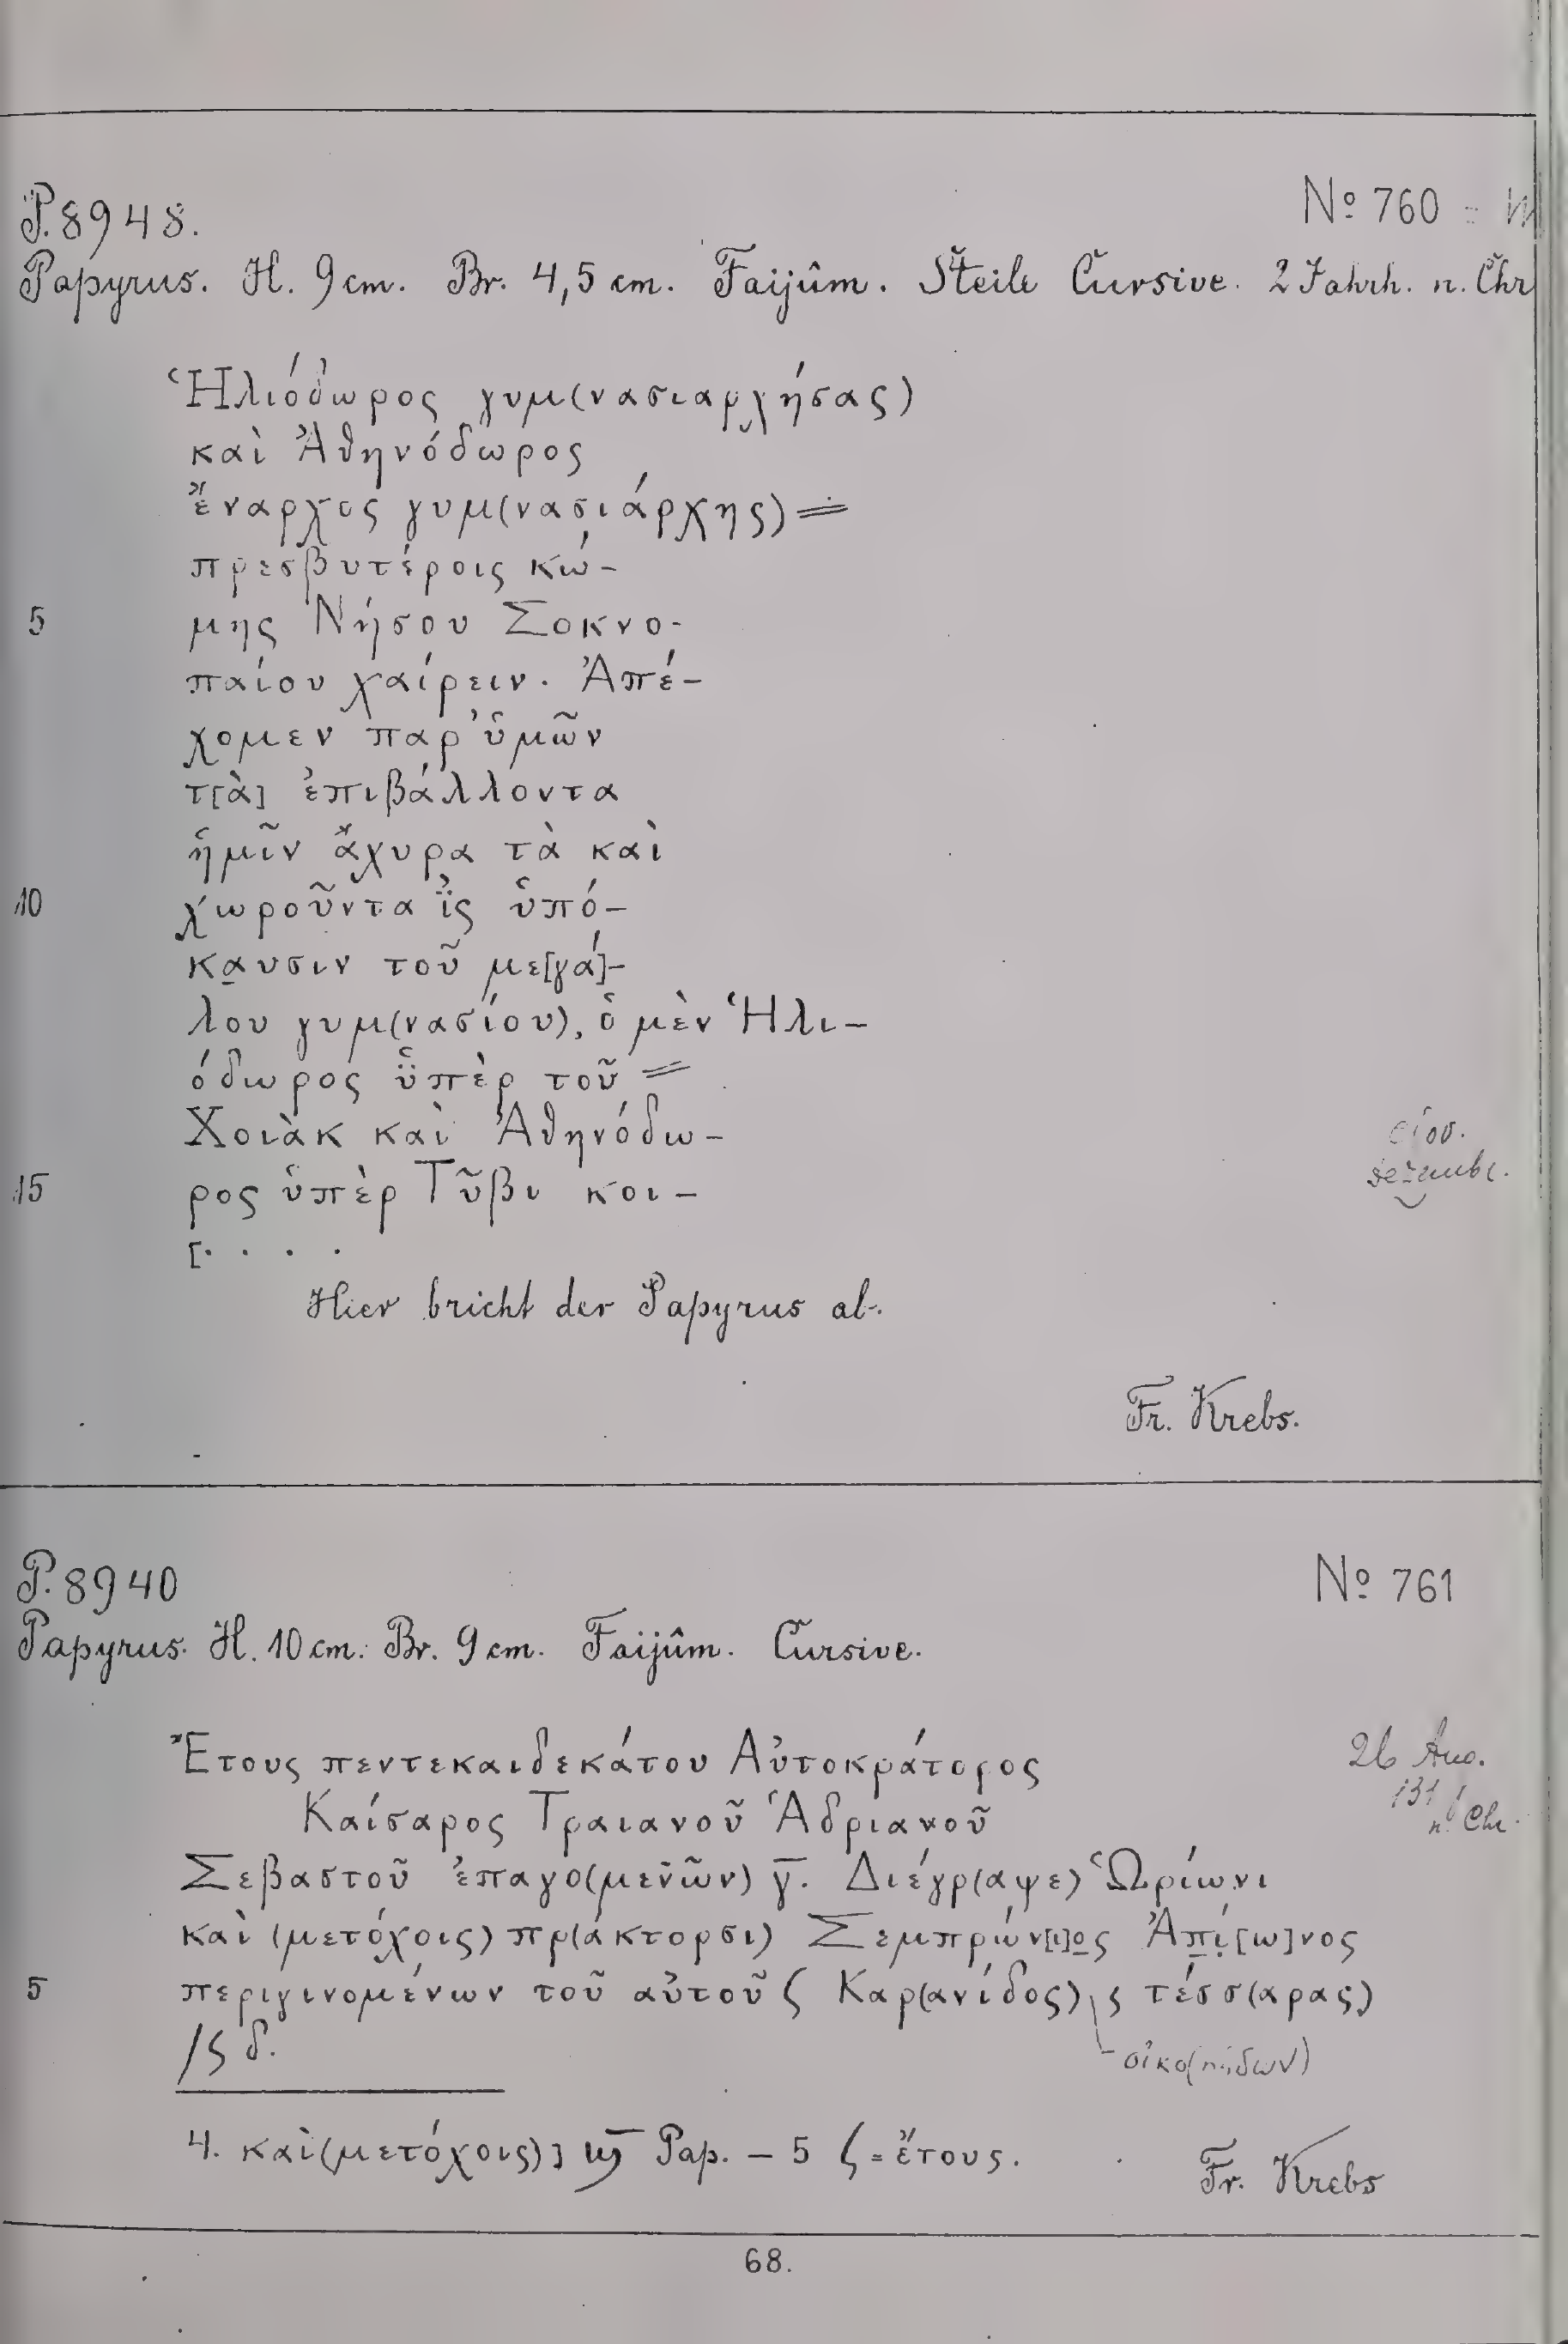 P. 8948. № 760
Papyrus. H. 9 cm. Br. 4,5 cm. Faijûm. Steile Cursive. 2 Jahrh. n. Chr
Ἡλιόδωρος γυμ(νασιαρχήσας)
καὶ Ἀθηνόδωρος
ἔναρχος γυμ(νασιάρχης) =
πρεσβυτέροις κώ-
5 μης Νήσου Σοκνο-
παίου χαίρειν. Ἀπέ-
χομεν παρ' ὑμῶν
τ[ὰ] ἐπιβάλλοντα
ἡμῖν ἄχυρα τὰ καὶ
10 χωροῦντα ἰς ὑπό-
καυσιν τοῦ με[γά]-
λου γυμ(νασίου), ὁ μὲν Ἡλι-
όδωρος ὑπὲρ τοῦ =
Χοιὰκ καὶ Ἀθηνόδω-
15 ρος ὑπὲρ Τῦβι κοι-
[. . . .
Hier bricht der Papyrus ab.
Fr. Krebs.
P. 8940 № 761
Papyrus. H. 10 cm. Br. 9 cm. Faijûm. Cursive.
Ἔτους πεντεκαιδεκάτου Αὐτοκράτορος 26 Aug.
Καίσαρος Τραιανοῦ Ἁδριανοῦ 131 n. Chr.
Σεβαστοῦ ἐπαγο(μενῶν) γ̅. Διέγρ(αψε) Ὡρίωνι
καὶ (μετόχοις) πρ(άκτορσι) Σεμπρών[ι]ο̣ς Ἀπ̣ί̣[ω]νος
5 περιγινομένων τοῦ αὐτοῦ ζ Καρ(ανίδος) ς τέσσ(αρας)
οἰκο(πέδων)
/ς δ.
4. καὶ (μετόχοις)] Pap. – 5 ζ = ἔτους.
Fr. Krebs
68.